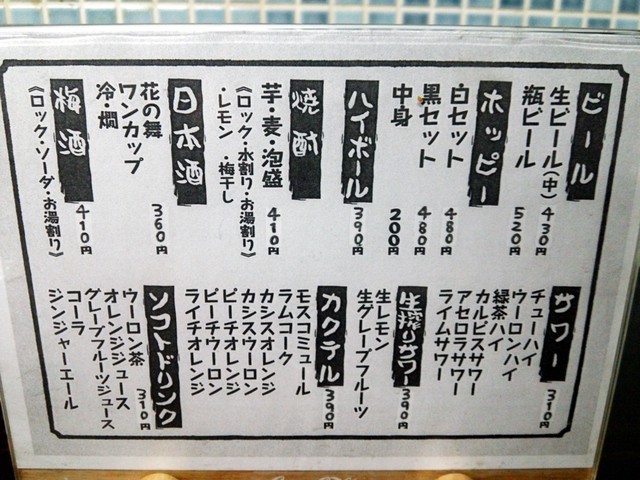 ビール
生ビール(中) 430円
瓶ビール 520円
ホッピー
白セット 480円
黒セット 480円
中身 200円
ハイボール 390円
焼酎
芋・麦・泡盛 410円
(ロック・水割り・お湯割り)
・レモン ・梅干し
日本酒
花の舞
ワンカップ 360円
冷・燗
梅酒 410円
(ロック・ソーダ・お湯割り)
サワー 310円
チューハイ
ウーロンハイ
緑茶ハイ
カルピスサワー
アセロラサワー
ライムサワー
生搾りサワー 390円
生レモン
生グレープフルーツ
カクテル 390円
モスコミュール
ラムコーク
カシスオレンジ
カシスウーロン
ピーチオレンジ
ピーチウーロン
ライチオレンジ
ソフトドリンク 310円
ウーロン茶
オレンジジュース
グレープフルーツジュース
コーラ
ジンジャーエール